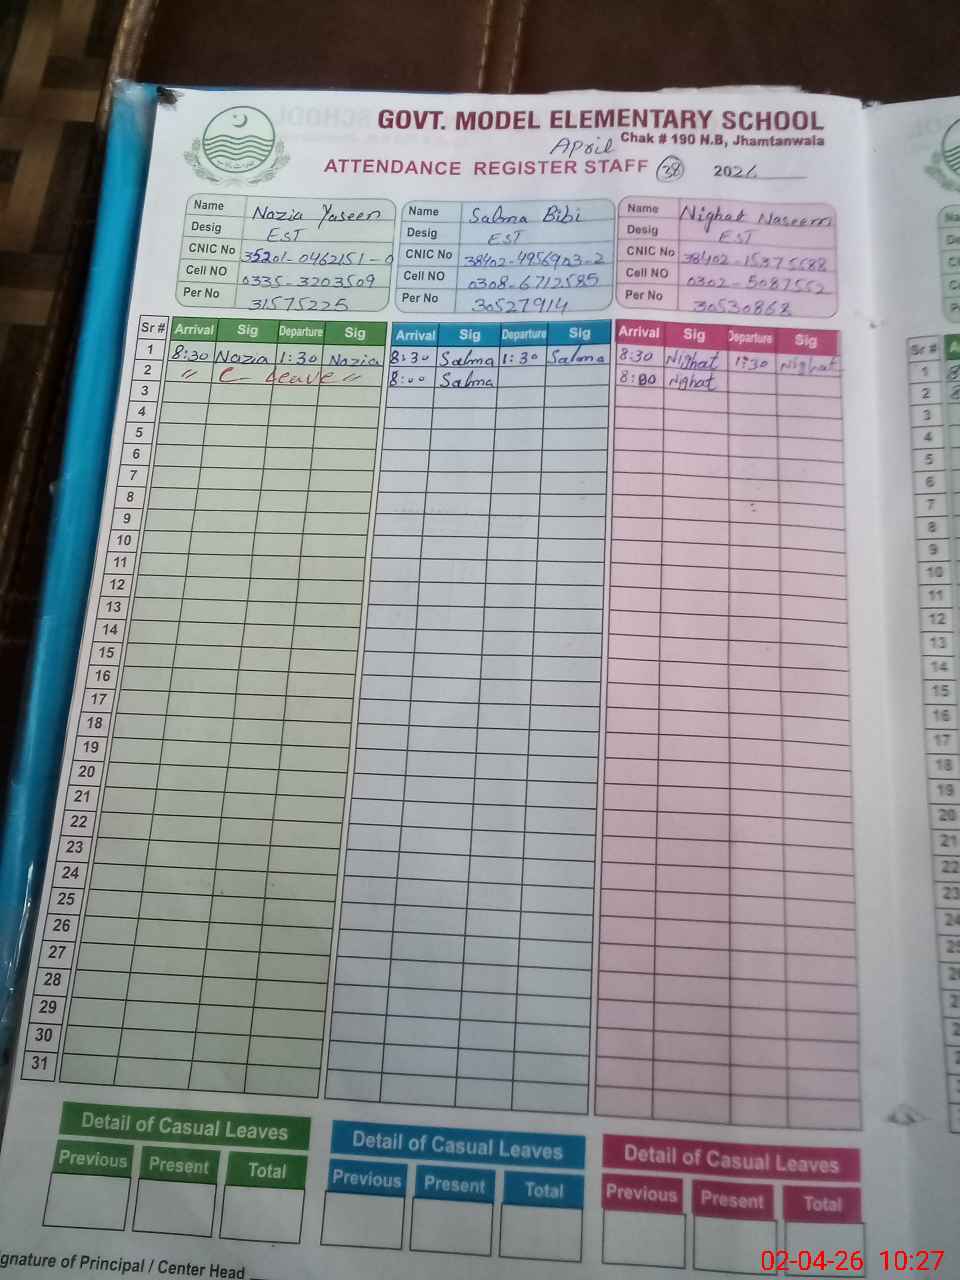 GOVT. MODEL ELEMENTARY SCHOOL
Chak # 190 N.B, Jhamtanwala
April
ATTENDANCE REGISTER STAFF 38 2026
Name Nazia Yaseen
Desig EST
CNIC No 35201-0462151-0
Cell NO 0335-3203509
Per No 31575225
Name Salma Bibi
Desig EST
CNIC No 38402-4956903-2
Cell NO 0308-6712585
Per No 30527914
Name Nighat Naseem
Desig EST
CNIC No 38402-15375688
Cell NO 0302-5087552
Per No 30530868
Sr # Arrival Sig Departure Sig Arrival Sig Departure Sig Arrival Sig Departure Sig
1 8:30 Nazia 1:30 Nazia 8:30 Salma 1:30 Salma 8:30 Nighat 1:30 Nighat
2 " C- Leave " 8:00 Salma 8:00 Nighat
3
4
5
6
7
8
9
10
11
12
13
14
15
16
17
18
19
20
21
22
23
24
25
26
27
28
29
30
31
Detail of Casual Leaves
Previous Present Total
Detail of Casual Leaves
Previous Present Total
Detail of Casual Leaves
Previous Present Total
gnature of Principal / Center Head
Sr #
1
2
3
4
5
6
7
8
9
10
11
12
13
14
15
16
17
18
19
20
21
22
23
02-04-26 10:27